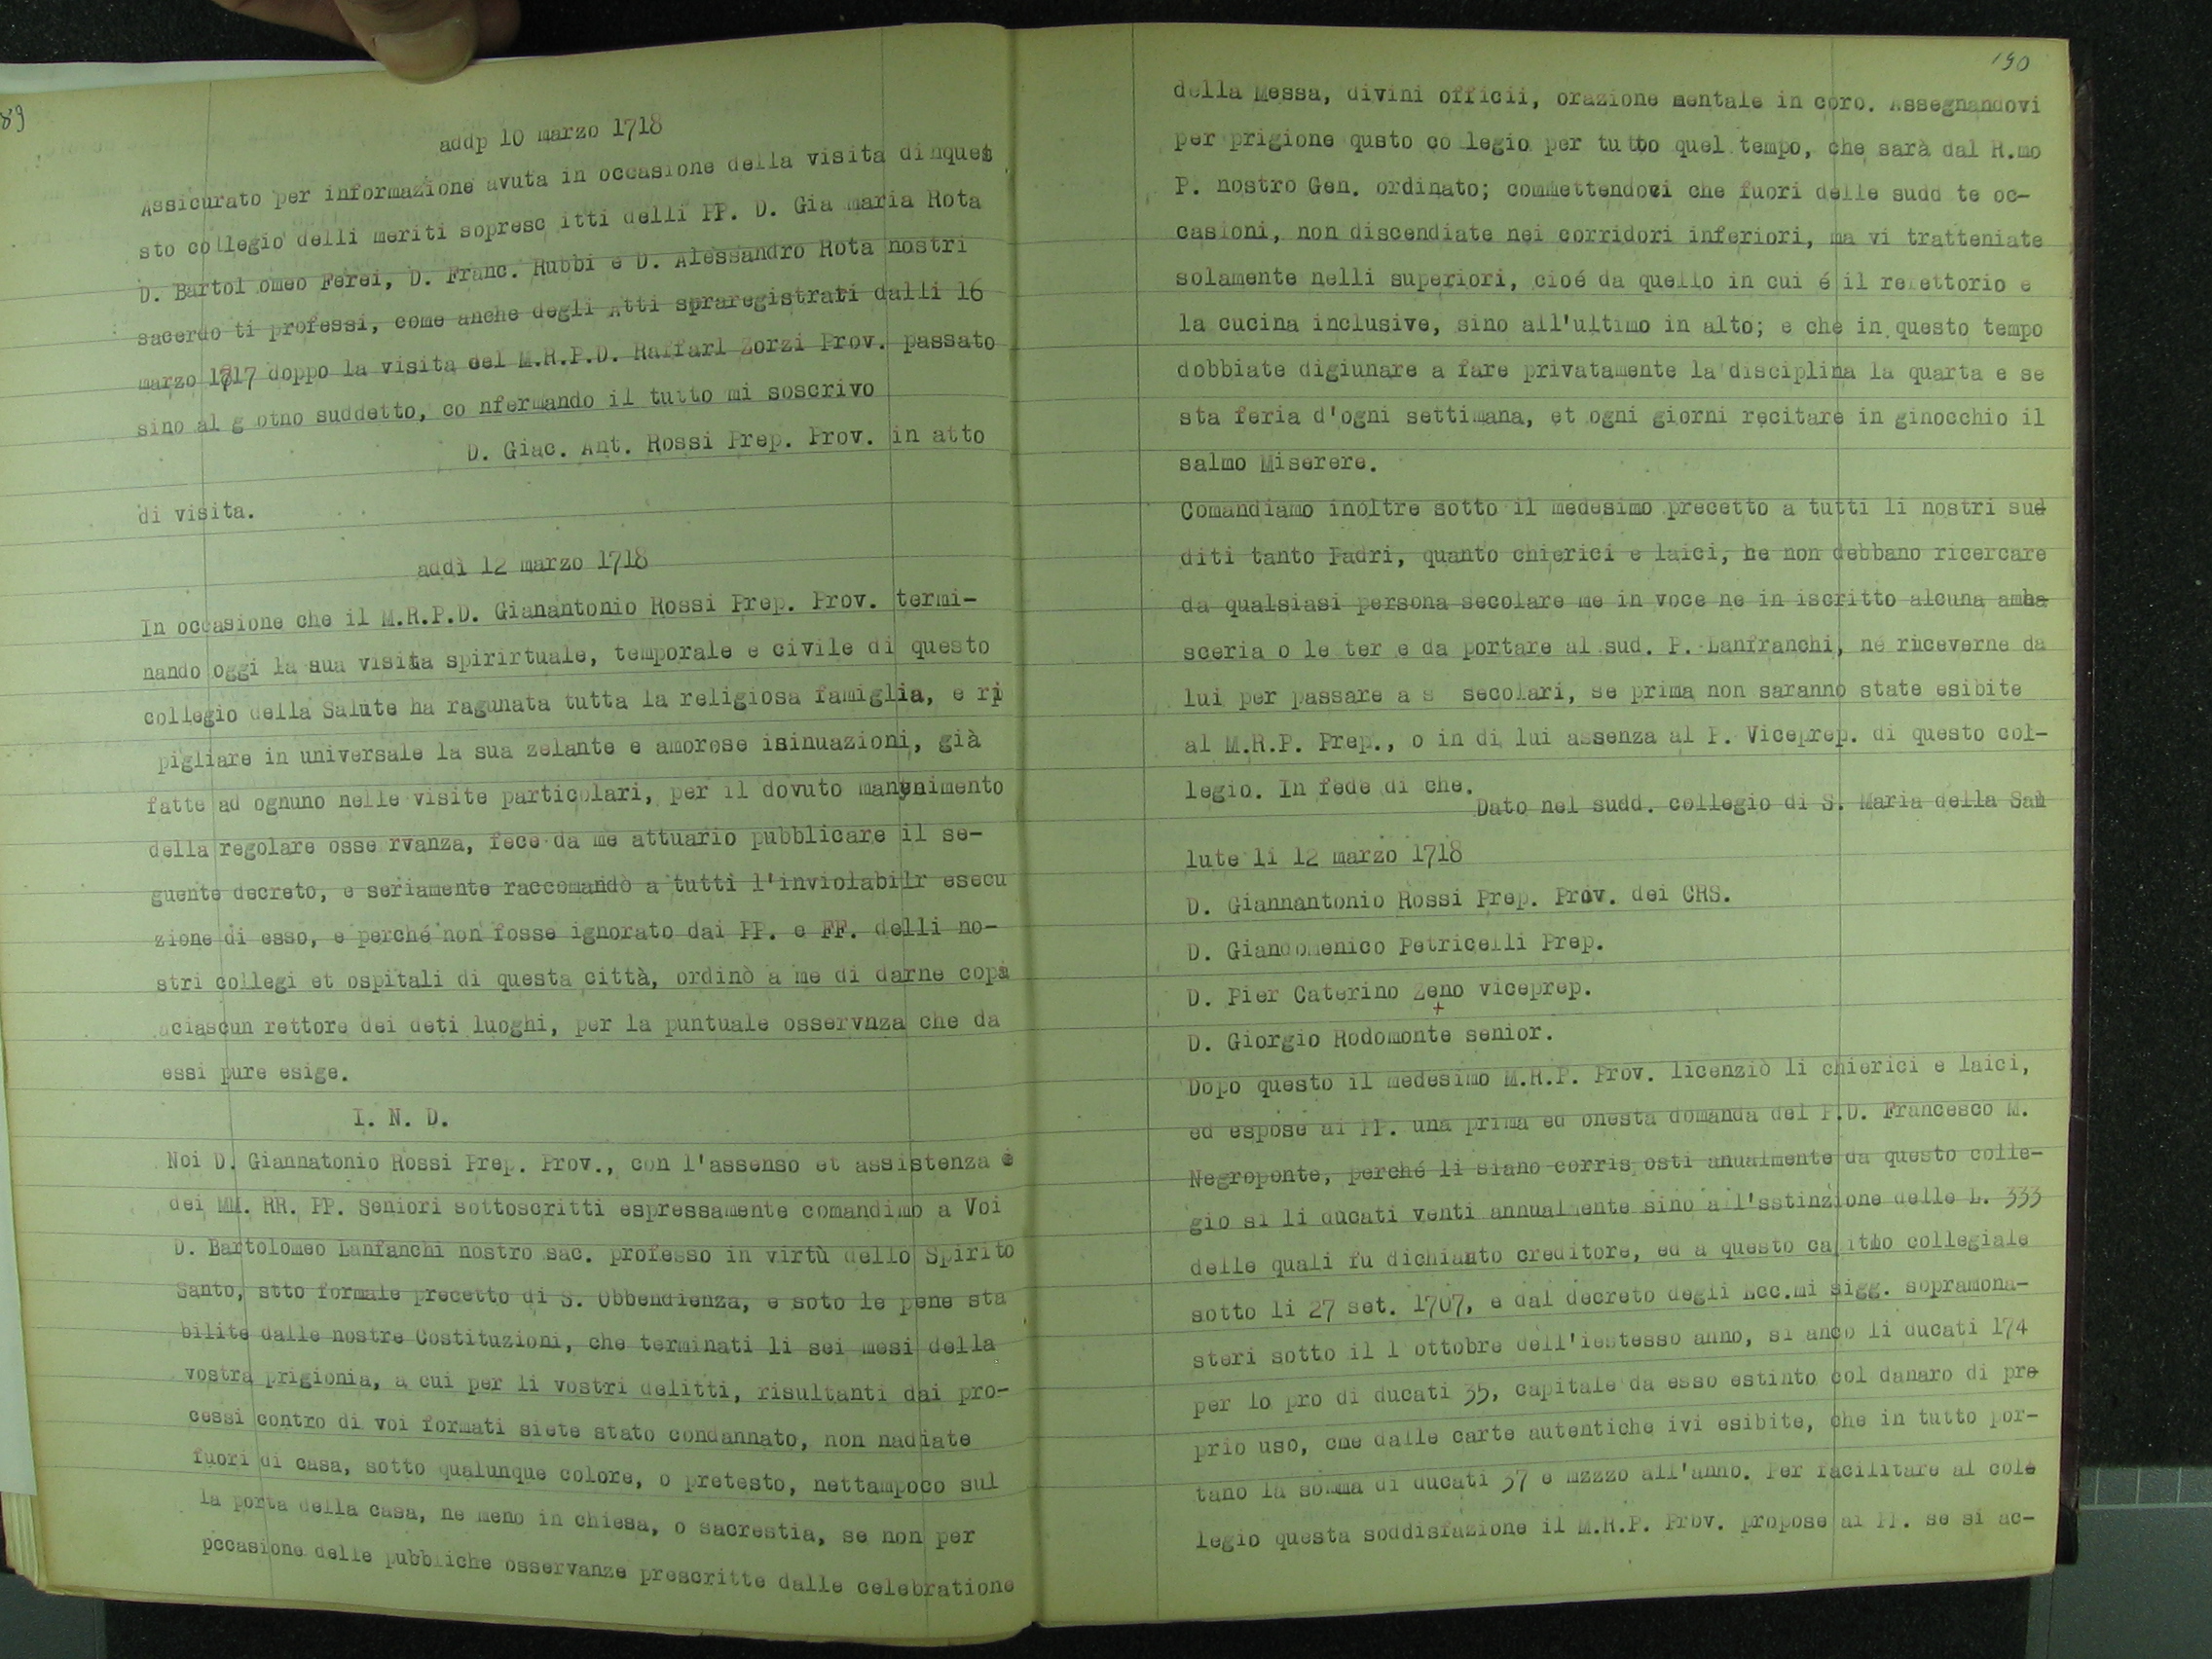 89
addp 10 marzo 1718
Assicurato per informazione avuta in occasione della visita dinques
sto collegio delli meriti sopresc itti delli PP. D. Gia maria Rota
D. Bartol omeo Ferei, D. Franc. Rubbi e D. Alessandro Rota nostri
sacerdo ti professi, come anche degli Atti spraregistrati dalli 16
marzo 1717 doppo la visita del M.R.P.D. Raffarl Zorzi Prov. passato
sino al g otno suddetto, co nfermando il tutto mi soscrivo
D. Giac. Ant. Rossi Prep. Prov. in atto
di visita.
addì 12 marzo 1718
In occasione che il M.R.P.D. Gianantonio Rossi Prep. Prov. termi-
nando oggi la sua visita spirirtuale, temporale e civile di questo
collegio della Salute ha ragunata tutta la religiosa famiglia, e ri
pigliare in universale la sua zelante e amorose isinuazioni, già
fatte ad ognuno nelle visite particolari, per il dovuto manynimento
della regolare osse rvanza, fece da me attuario pubblicare il se-
guente decreto, e seriamente raccomandò a tutti l'inviolabilr esecu
zione di esso, e perché non fosse ignorato dai PP. e FF. delli no-
stri collegi et ospitali di questa città, ordinò a me di darne copa
aciascun rettore dei deti luoghi, per la puntuale osservnza che da
essi pure esige.
I. N. D.
Noi D. Giannatonio Rossi Prep. Prov., con l'assenso et assistenza e
dei MM. RR. PP. Seniori sottoscritti espressamente comandimo a Voi
D. Bartolomeo Lanfanchi nostro sac. professo in virtù dello Spirito
Santo, stto formale precetto di S. Obbendienza, e soto le pene sta
bilite dalle nostre Costituzioni, che terminati li sei mesi della
vostra prigionia, a cui per li vostri delitti, risultanti dai pro-
cessi contro di voi formati siete stato condannato, non nadiate
fuori di casa, sotto qualunque colore, o pretesto, nettampoco sul
la porta della casa, ne meno in chiesa, o sacrestia, se non per
pccasione delle pubbliche osservanze prescritte dalle celebratione
190
della Messa, divini officii, orazione mentale in coro. Assegnandovi
per prigione qusto co legio per tutto quel tempo, che sarà dal R.mo
P. nostro Gen. ordinato; commettendovi che fuori delle sudd te oc-
casioni, non discendiate nei corridori inferiori, ma vi tratteniate
solamente nelli superiori, cioé da quello in cui é il refettorio e
la cucina inclusive, sino all'ultimo in alto; e che in questo tempo
dobbiate digiunare a fare privatamente la disciplina la quarta e se
sta feria d'ogni settimana, et ogni giorni recitare in ginocchio il
salmo Miserere.
Comandiamo inoltre sotto il medesimo precetto a tutti li nostri sud
diti tanto Padri, quanto chierici e laici, he non debbano ricercare
da qualsiasi persona secolare me in voce ne in iscritto alcuna amba
sceria o le ter e da portare al sud. P. Lanfranchi, né riceverne da
lui per passare a s secolari, se prima non saranno state esibite
al M.R.P. Prep., o in di lui assenza al P. Viceprep. di questo col-
legio. In fede di che.
Dato nel sudd. collegio di S. Maria della Sa
lute li 12 marzo 1718
D. Giannantonio Rossi Prep. Prov. dei CRS.
D. Giandomenico Petricelli Prep.
D. Pier Caterino Zeno viceprep.
+
D. Giorgio Rodomonte senior.
Dopo questo il medesimo M.R.P. Prov. licenziò li chierici e laici,
ed espose ai PP. una prima ed onesta domanda del P.D. Francesco M.
Negroponte, perché li siano corris osti anualmente da questo colle-
gio sì li ducati venti annualmente sino all'sstinzione delle L. 333
delle quali fu dichianto creditore, ed a questo ca itmo collegiale
sotto li 27 set. 1707, e dal decreto degli Ecc.mi sigg. sopramona-
steri sotto il 1 ottobre dell'iestesso anno, sì anco li ducati 174
per lo pro di ducati 35, capitale da esso estinto col danaro di pro
prio uso, che dalle carte autentiche ivi esibite, che in tutto por-
tano la somma di ducati 37 e mzzzo all'anno. Per facilitare al cole
legio questa soddisfazione il M.R.P. Prov. propose ai PP. se si ac-